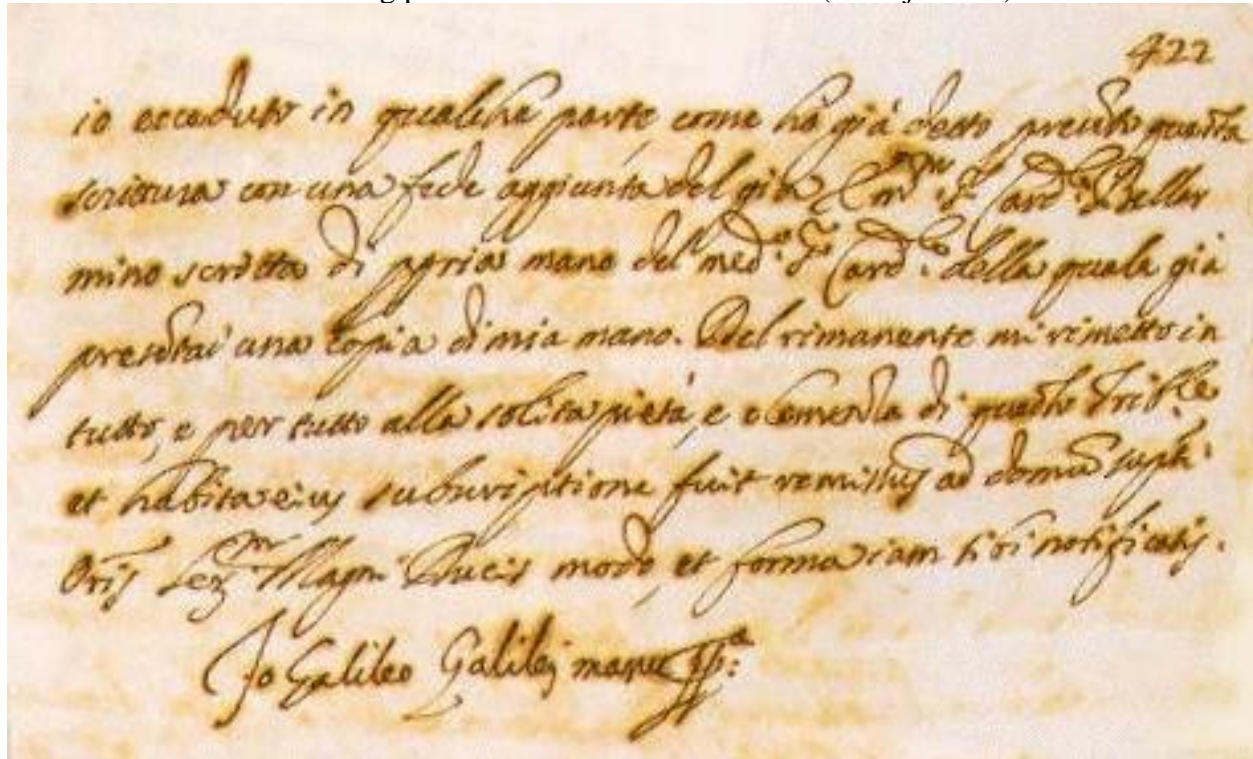 422
io ecceduto in qualche parte, come hà già detto presento questa
scrittura con una fede aggiunta del già Em.mo S.r Card.le Bellar
mino scritta di ppria mano del med.o S.r Card.le della quale già
presentai una copia di mia mano. Del rimanente mi rimetto in
tutto, e per tutto alla solita pietà, e clemenza di questo Trib.le
et habita eius subscriptione fuit remissus ad domũ supti
Oris Ser.mi Magni Ducis modo, et forma iam sibi notificatis.
Io Galileo Galilei manu pp.a: